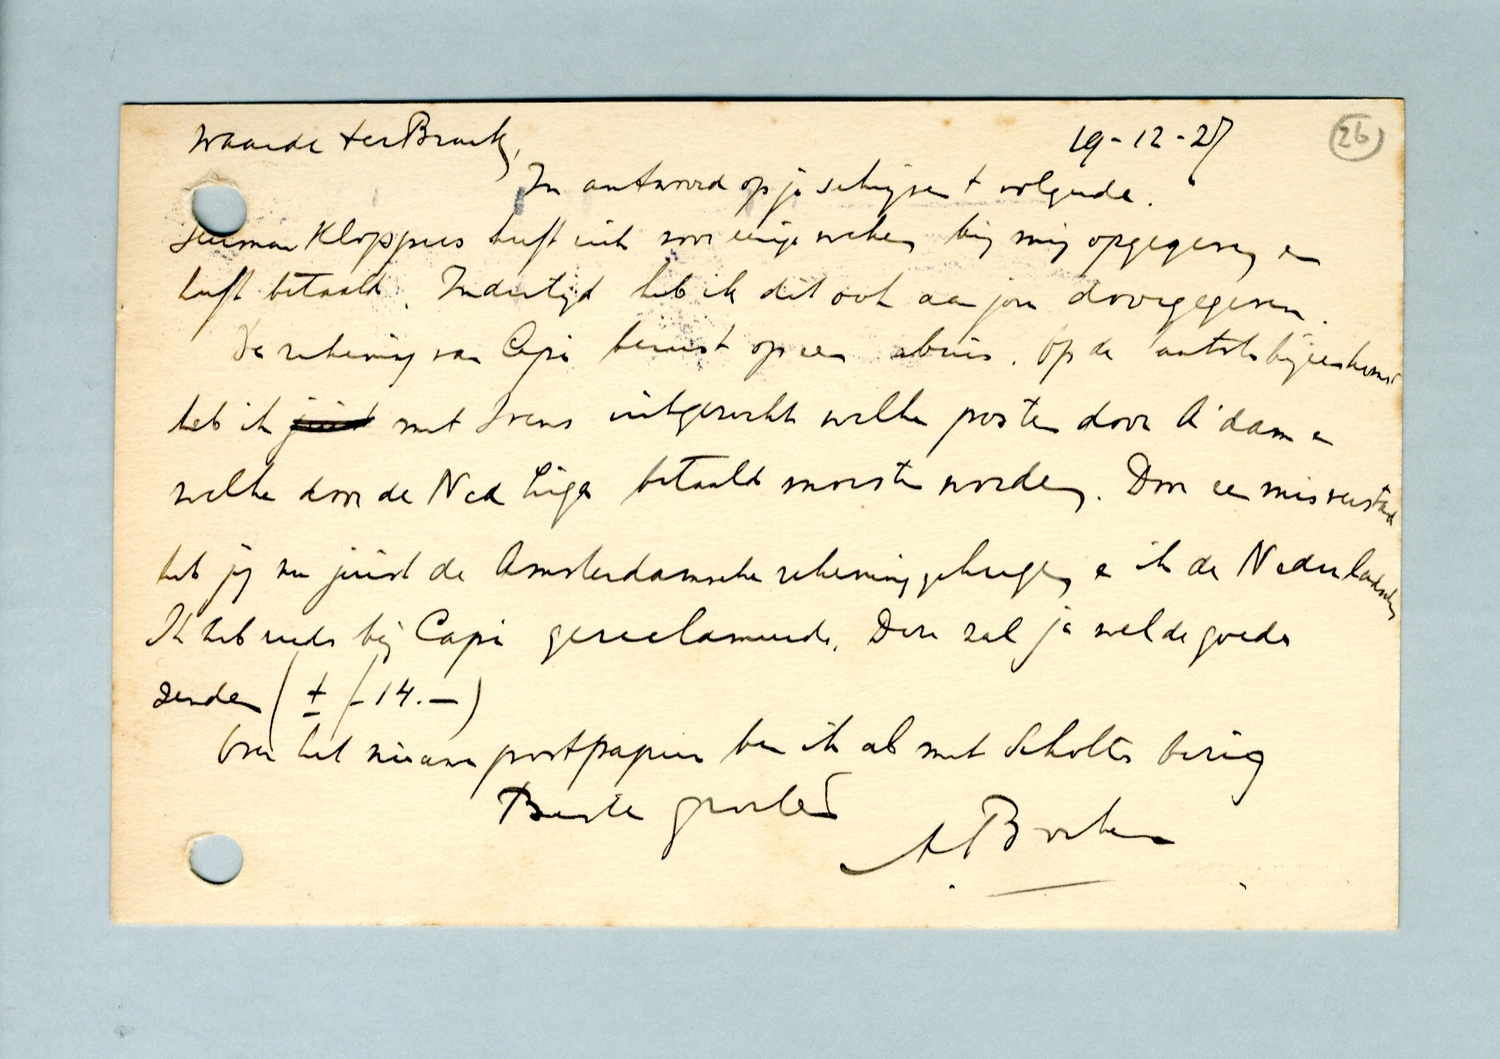 Waarde ter Braak, 19-12-27 26
In antwoord op je schrijven 't volgende.
Herman Kloppers heeft zich voor eenige weken bij mij opgegeven en
heeft betaald. Indertijd heb ik dit ook aan jou doorgegeven.
De rekening van Capi berust op een abuis. Op de laatste bijeenkomst
heb ik juist met Ivens uitgezocht welke posten door A'dam en
welke door de Ned Liga betaald moesten worden. Door een misverstand
heb jij nu juist de Amsterdamsche rekening gekregen en ik de Nederlandsche
Ik heb reeds bij Capi gereclameerd. Deze zal je wel de goede
zenden (± f 14.—)
Over het nieuwe postpapier ben ik al met Scholte bezig
Beste groeten